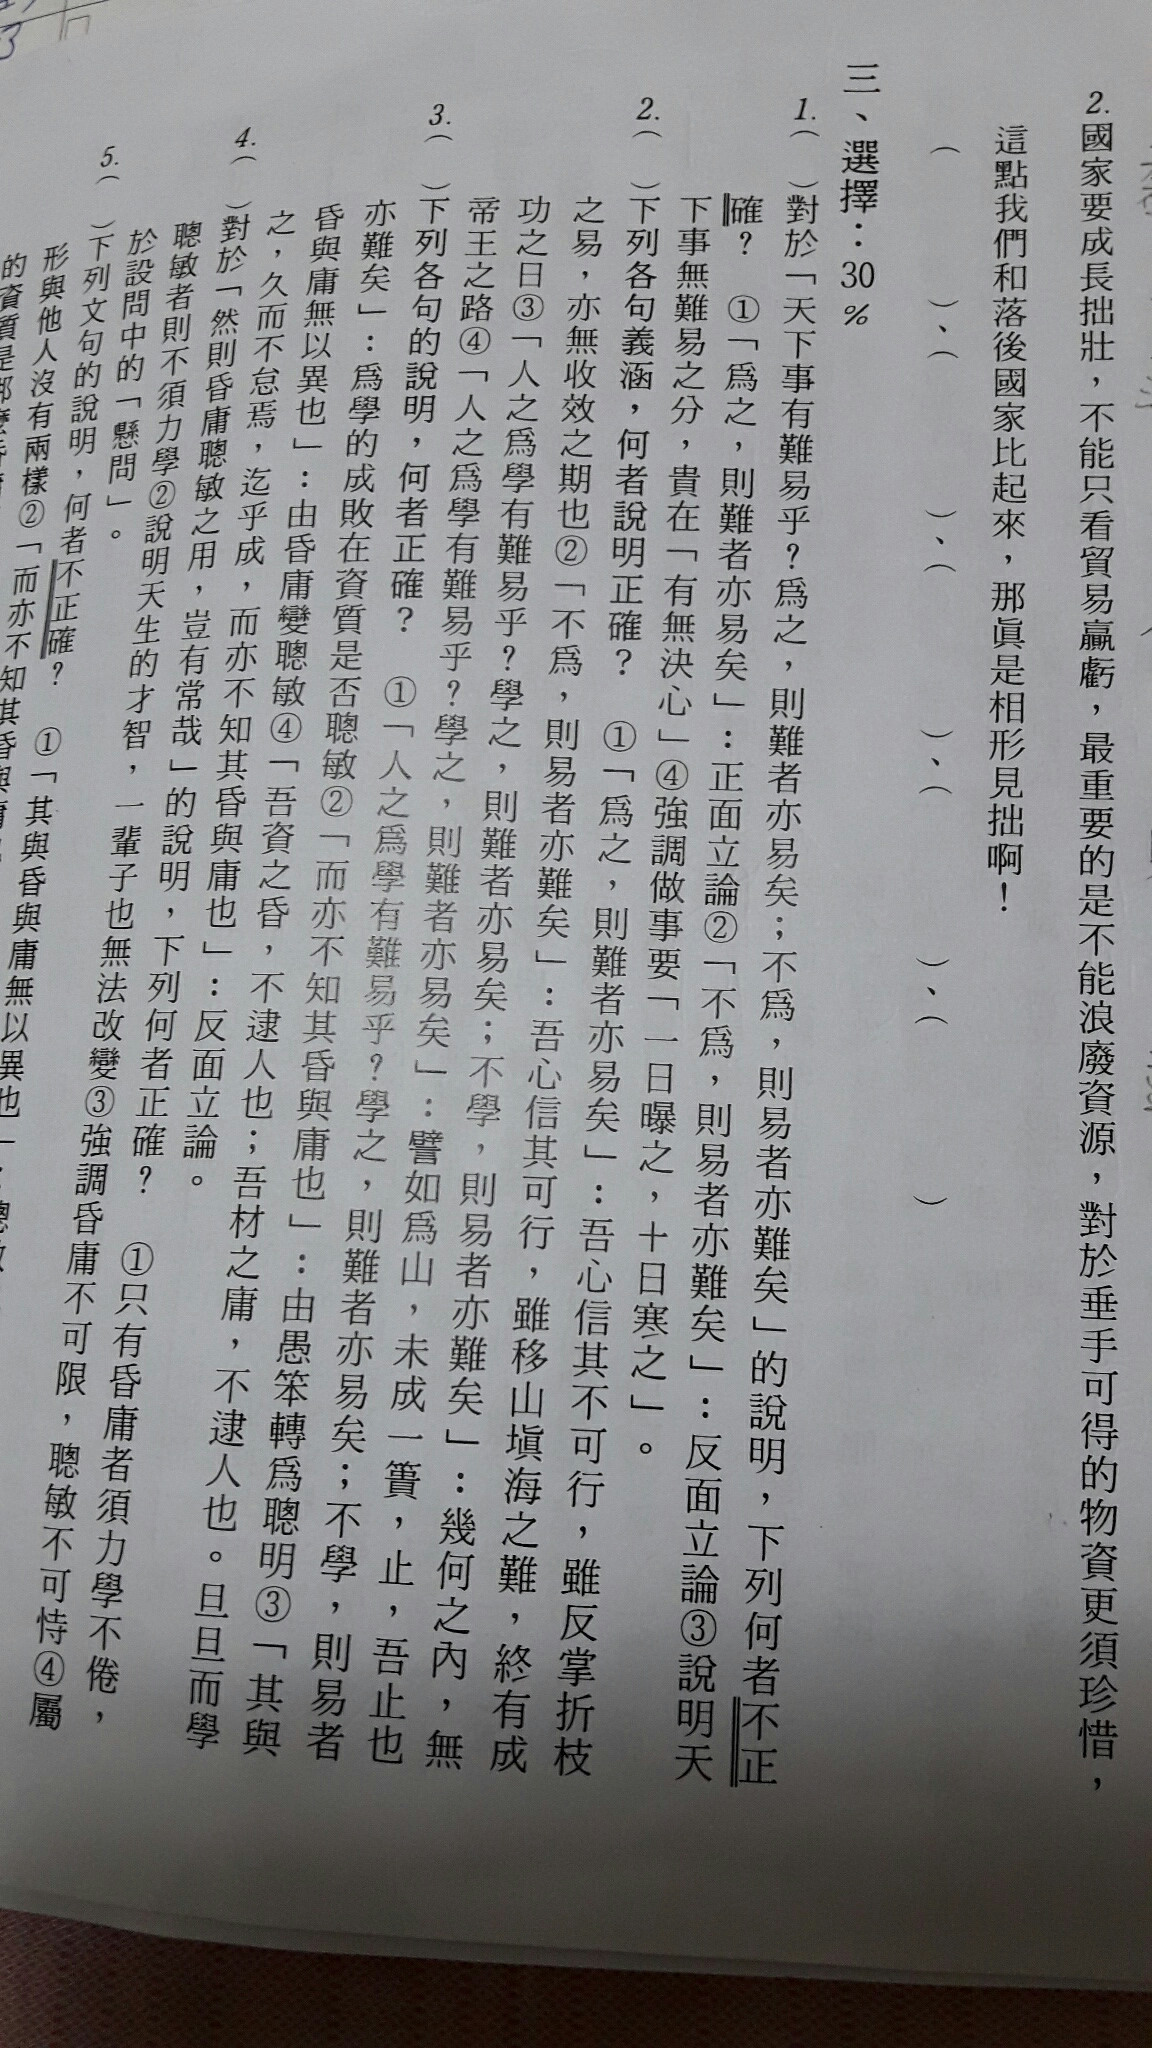 2.國家要成長拙壯，不能只看貿易贏虧，最重要的是不能浪廢資源，對於垂手可得的物資更須珍惜，
這點我們和落後國家比起來，那真是相形見拙啊！
（　　）、（　　）、（　　）、（　　）、（　　）
三、選擇：30%
1.（　）對於「天下事有難易乎？為之，則難者亦易矣；不為，則易者亦難矣」的說明，下列何者不正
確？　①「為之，則難者亦易矣」：正面立論②「不為，則易者亦難矣」：反面立論③說明天
下事無難易之分，貴在「有無決心」④強調做事要「一日曝之，十日寒之」。
2.（　）下列各句義涵，何者說明正確？　①「為之，則難者亦易矣」：吾心信其不可行，雖反掌折枝
之易，亦無收效之期也②「不為，則易者亦難矣」：吾心信其可行，雖移山填海之難，終有成
功之日③「人之為學有難易乎？學之，則難者亦易矣；不學，則易者亦難矣」：幾何之內，無
帝王之路④「人之為學有難易乎？學之，則難者亦易矣」：譬如為山，未成一簣，止，吾止也
3.（　）下列各句的說明，何者正確？　①「人之為學有難易乎？學之，則難者亦易矣；不學，則易者
亦難矣」：為學的成敗在資質是否聰敏②「而亦不知其昏與庸也」：由愚笨轉為聰明③「其與
昏與庸無以異也」：由昏庸變聰敏④「吾資之昏，不逮人也；吾材之庸，不逮人也。旦旦而學
之，久而不怠焉，迄乎成，而亦不知其昏與庸也」：反面立論。
4.（　）對於「然則昏庸聰敏之用，豈有常哉」的說明，下列何者正確？　①只有昏庸者須力學不倦，
聰敏者則不須力學②說明天生的才智，一輩子也無法改變③強調昏庸不可限，聰敏不可恃④屬
於設問中的「懸問」。
5.（　）下列文句的說明，何者不正確？　①「其與昏與庸無以異也」：
形與他人沒有兩樣②「而亦不知其昏與庸
的資質是那麼昏